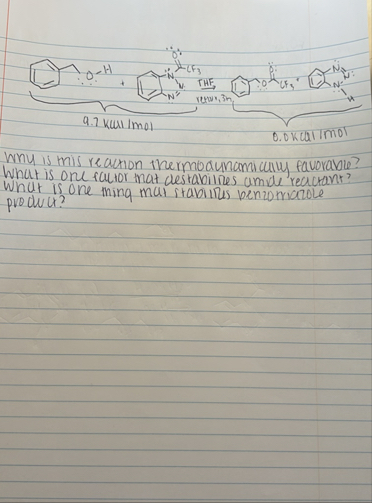 O-H + THF
reflux, 3h
CF3
9.7 kcal/mol
0.0 kcal/mol
Why is this reaction thermodynamically favorable?
What is one factor that destabilizes amide reactant?
What is one thing that stabilizes benzotriazole
product?